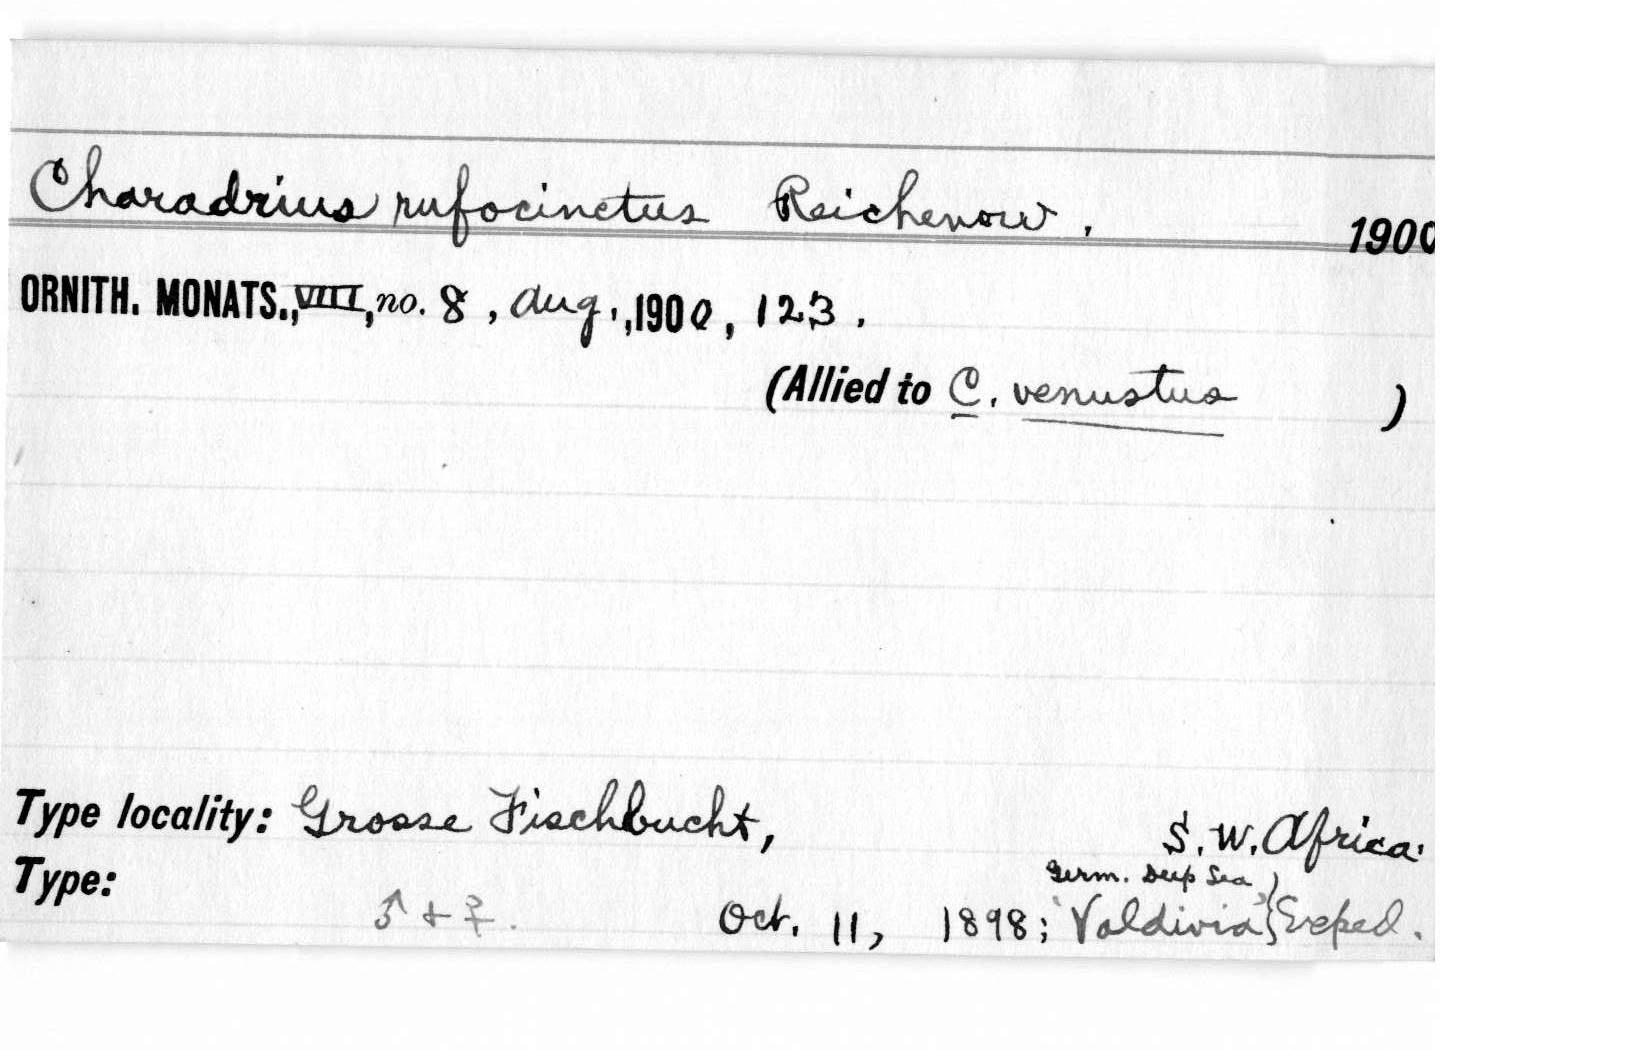 Charadrius rufocinctus Reichenow. 1900
ORNITH. MONATS., VIII, no. 8, Aug., 1900, 123.
(Allied to C. venustus )
Type locality: Grosse Fischbucht, S. W. Africa.
Type: Germ. Deep Sea
♂ + ♀. Oct. 11, 1898; 'Valdivia' } Exped.